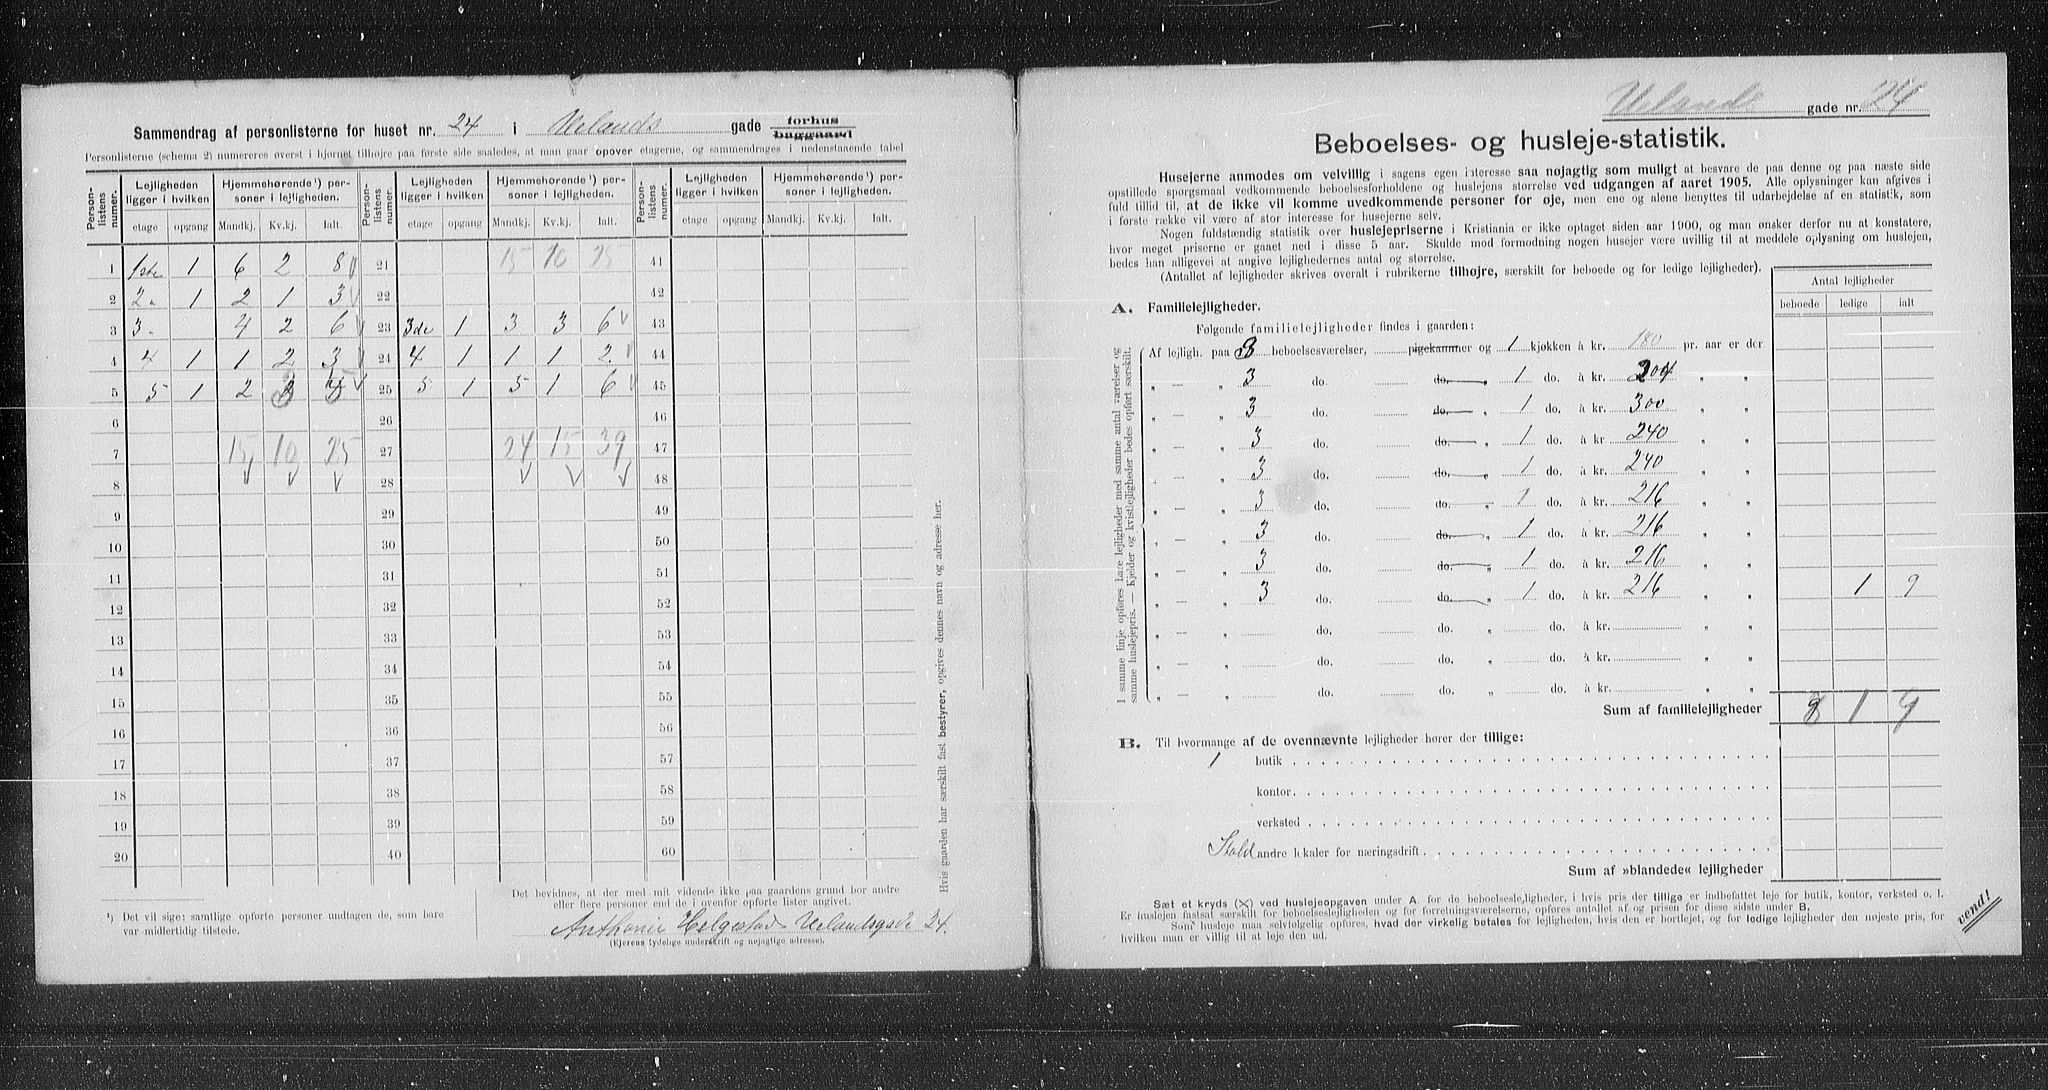 Sammendrag af personlisterne for huset nr. 24 i Uelands gade forhus baggaard
Personlisterne (schema 2) numereres øverst i hjørnet tilhøjre paa første side saaledes, at man gaar opover etagerne, og sammendrages i nedenstaaende tabel
Person-listens numer. Lejligheden ligger i hvilken Hjemmehørende¹) personer i lejligheden. Person-listens numer. Lejligheden ligger i hvilken Hjemmehørende¹) personer i lejligheden. Person-listens numer. Lejligheden ligger i hvilken Hjemmehørende¹) personer i lejligheden.
etage opgang Mandkj. Kv.kj. Ialt. etage opgang Mandkj. Kv.kj. Ialt. etage opgang Mandkj. Kv.kj. Ialt.
1 1ste 1 6 2 8 21 15 10 25 41
2 2 1 2 1 3 22 42
3 3 4 2 6 23 3de 1 3 3 6 43
4 4 1 1 2 3 24 4 1 1 1 2 44
5 5 1 2 3 5 25 5 1 5 1 6 45
6 26 46
7 15 10 25 27 24 15 39 47
8 28 48
9 29 49
10 30 50
11 31 51
12 32 52
13 33 53
14 34 54
15 35 55
16 36 56
17 37 57
18 38 58
19 39 59
20 40 60
¹) Det vil sige: samtlige opførte personer undtagen de, som bare var midlertidig tilstede.
Det bevidnes, at der med mit vidende ikke paa gaardens grund bor andre
eller flere personer end de i ovenfor opførte lister angivet.
Anthonie Helgestad Uelandsgade 24.
(Ejerens tydelige underskrift og nøjagtige adresse).
Hvis gaarden har særskilt fast bestyrer, opgives dennes navn og adresse her.
Uelands gade nr. 24
Beboelses- og husleje-statistik.
Husejerne anmodes om velvillig i sagens egen interesse saa nøjagtig som muligt at besvare de paa denne og paa næste side
opstillede spørgsmaal vedkommende beboelsesforholdene og huslejens størrelse ved udgangen af aaret 1905. Alle oplysninger kan afgives i
fuld tillid til, at de ikke vil komme uvedkommende personer for øje, men ene og alene benyttes til udarbejdelse af en statistik, som
i første række vil være af stor interesse for husejerne selv.
Nogen fuldstændig statistik over huslejepriserne i Kristiania er ikke optaget siden aar 1900, og man ønsker derfor nu at konstatere,
hvor meget priserne er gaaet ned i disse 5 aar. Skulde mod formodning nogen husejer være uvillig til at meddele oplysning om huslejen,
bedes han alligevel at angive lejlighedernes antal og størrelse.
(Antallet af lejligheder skrives overalt i rubrikerne tilhøjre, særskilt for beboede og for ledige lejligheder).
Antal lejligheder
beboede ledige ialt
A. Familielejligheder.
Følgende familielejligheder findes i gaarden:
I samme linje opføres bare lejligheder med samme antal værelser og samme huslejepris. — Kjelder og kvistlejligheder bedes opført særskilt.
Af lejligh. paa 3 beboelsesværelser, pigekammer og 1 kjøkken à kr. 180 pr. aar er der
„ — „ 3 do. do. „ 1 do. à kr. 204 „ „
„ — „ 3 do. do. „ 1 do. à kr. 300 „ „
„ — „ 3 do. do. „ 1 do. à kr. 240 „ „
„ — „ 3 do. do. „ 1 do. à kr. 240 „ „
„ — „ 3 do. do. „ 1 do. à kr. 216 „ „
„ — „ 3 do. do. „ 1 do. à kr. 216 „ „
„ — „ 3 do. do. „ 1 do. à kr. 216 „ „
„ — „ 3 do. do. „ 1 do. à kr. 216 „ „ 1 9
„ — „ do. do. „ do. à kr. „ „
„ — „ do. do. „ do. à kr. „ „
„ — „ do. do. „ do. à kr. „ „
Sum af familielejligheder 8 1 9
B. Til hvormange af de ovennævnte lejligheder hører der tillige:
1 butik
kontor
verksted
Stald andre lokaler for næringsdrift
Sum af »blandede« lejligheder
Sæt et kryds (×) ved huslejeopgaven under A. for de beboelseslejligheder, i hvis pris der tillige er indbefattet leje for butik, kontor, verksted o. l.
Er huslejen fastsat særskilt for beboelseslejligheden og for forretningsværelserne, opføres antallet af og prisen for disse sidste under B.
Som husleje maa selvfølgelig opføres, hvad der virkelig betales for lejligheden, hvis den er bortlejet, og for ledige lejligheder den nøjeste pris, for
hvilken man er villig til at leje den ud.
vend!